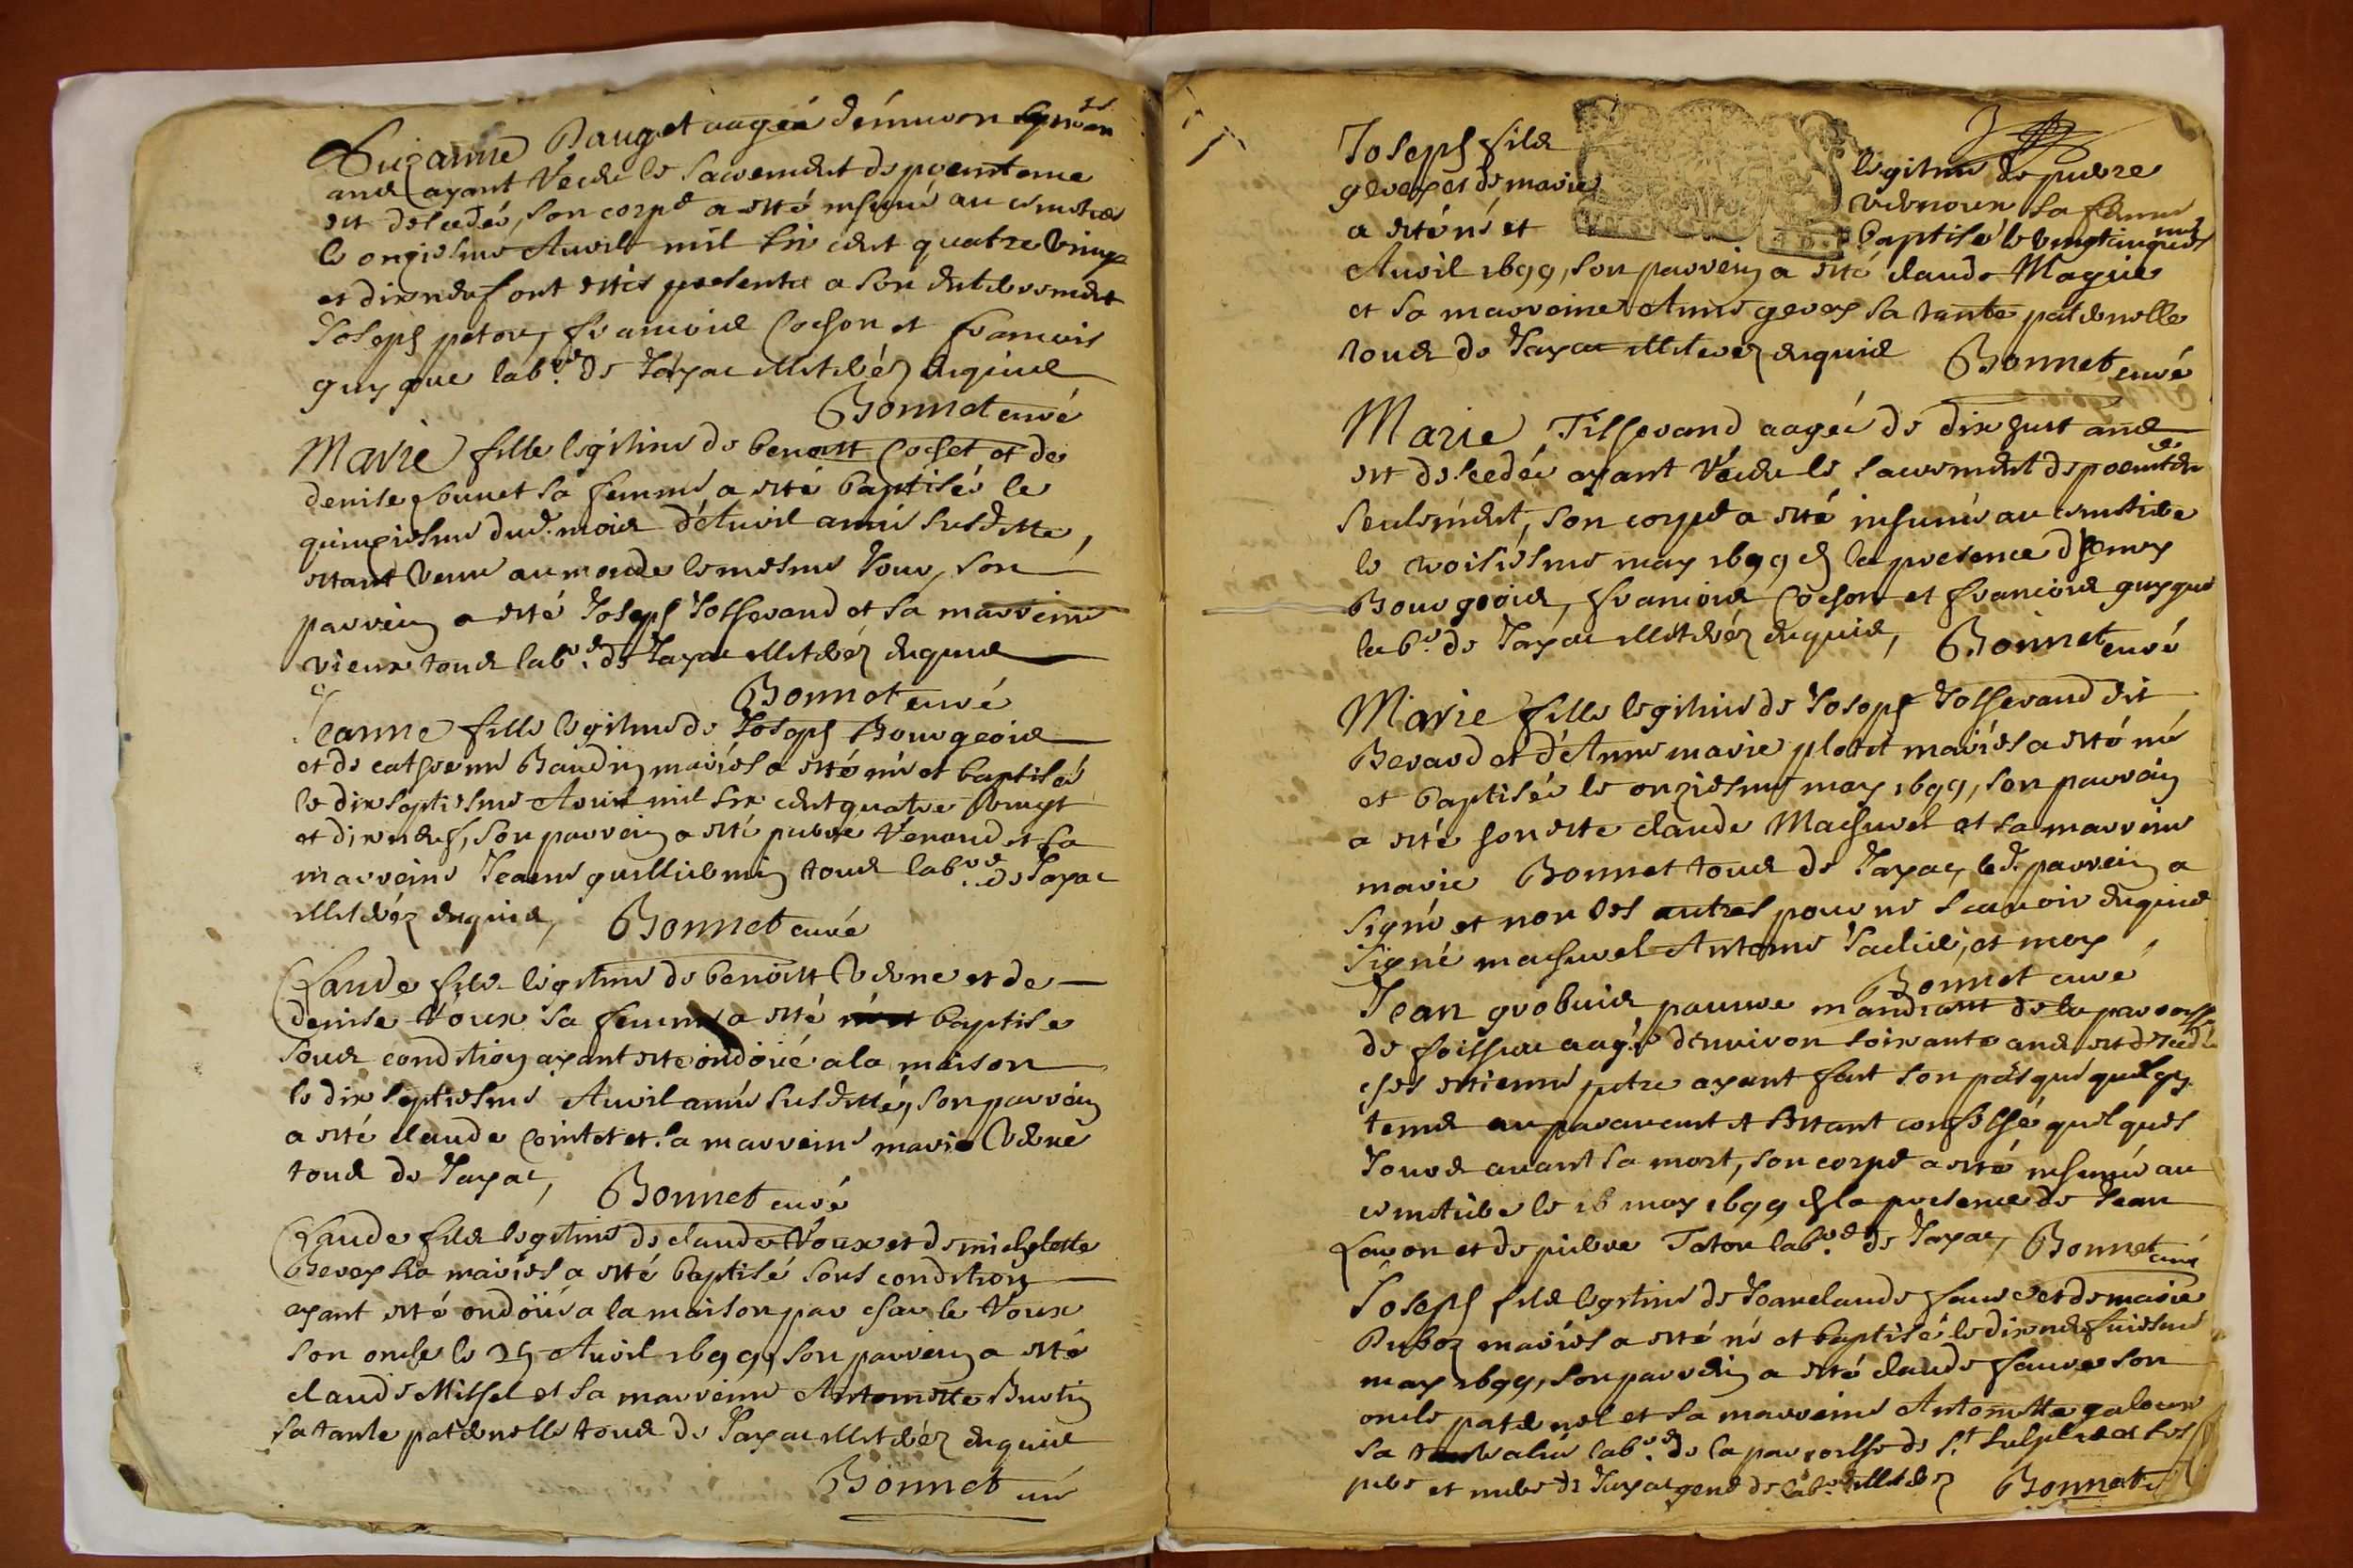 Suzanne Pauget aagée d'enuiron
ans ayant receu le sacrement de poenitence
est decedée, son corps a esté inhumé au cimetiere
le onziesme Auril mil six cent quatre vingt
et dixneuf ont estés presents a son enterrement
Joseph peton, francois Cochon et francois
guyque lab.rs de Jayac illiterés enquis
Bonnet curé
Marie fille legitime de benoitt Cochet et de
denise sa femme a esté baptisée le
quinziesme dud. mois d'Auril année susditte,
estant venue au monde le mesme Jour, son
parrein a esté Joseph Josserand et sa marreine
vieux tous lab.rs de Jayac illiterés enquis
Bonnet curé
Jeanne fille legitime de Joseph Bourgeois
et de catherine Baudin mariés a esté née et baptisée
le dix septiesme Auril mil six cent quatre vingt
et dixneuf, son parrein a esté pierre Venoud et sa
marreine Jeanne guilliemin tous lab.rs de Jayac
illiterés enquis, Bonnet curé
Claude fils legitime de benoitt Verne et de
denise Voux sa femme a esté baptisé
sous condition ayant esté ondoié a la maison
le dix septiesme Auril année susdittée, son parrein
a esté claude Cointet et sa marreine marie Verne
tous de Jayac, Bonnet curé
Claude fils legitime de claude Voux et de michelette
Berey mariés a esté baptisé sous condition
ayant esté ondoïé a la maison par charle Voux
son oncle le 25 Auril 1699, son parrein a esté
claude Michel et sa marreine Antoinette Buttin
sa tante paternelle tous de Jayac illiterés enquis
Bonnet curé
Joseph fils legitime de pierre
gerey et de marie sa femme
a esté né et baptisé le vingtcinquiesme
Auril 1699, son parrein a esté claude Magnie
et sa marreine Anne gerey sa tante paternelle
tous de Jayac illiterez enquis Bonnet curé
Marie Tisserand aagée de dix huit ans
est decedée ayant receu le sacrement de poenitence
seulement, son corps a esté inhumé au cimetiere
le troisiesme may 1699 en la presence d'hemy
Bourgeois, francois Cochon et francois guyque
lab.rs de Jayac illiterés enquis, Bonnet curé
Marie fille legitime de Joseph Josserand dit
Berard et d'Anne marie plotit mariés a esté née
et baptisée le onziesme may 1699, son parrein
a esté honeste claude Machurel et sa marreine
marie Bonnet tous de Jayac, led. parrein a
signé et non les autres pour ne scauoir enquis
signé machurel Antoine et moy
Bonnet curé
Jean grobuis pauure mandiant de la parroisse
de foissia aagé d'enuiron soixante ans est decedé
ches estienne petre ayant fait son pasque quelque
tems auparauant et s'estant confessé quelques
Jours auant sa mort, son corps a esté inhumé au
cimetiere le 16 may 1699 en la presence de Jean
Lauon et de pierre Taton lab.rs de Jayac, Bonnet curé
Joseph fils legitime de Jeanclaude faure et de marie
Puboz mariés a esté né et baptisé le dixneufuiesme
may 1699, son parrein a esté claude faure son
oncle paternel et sa marreine Antoinette
sa lab.rs de la parroisse de S.t sulpice et ses
pere et mere de Jayac gens de lab. illiterez Bonnet